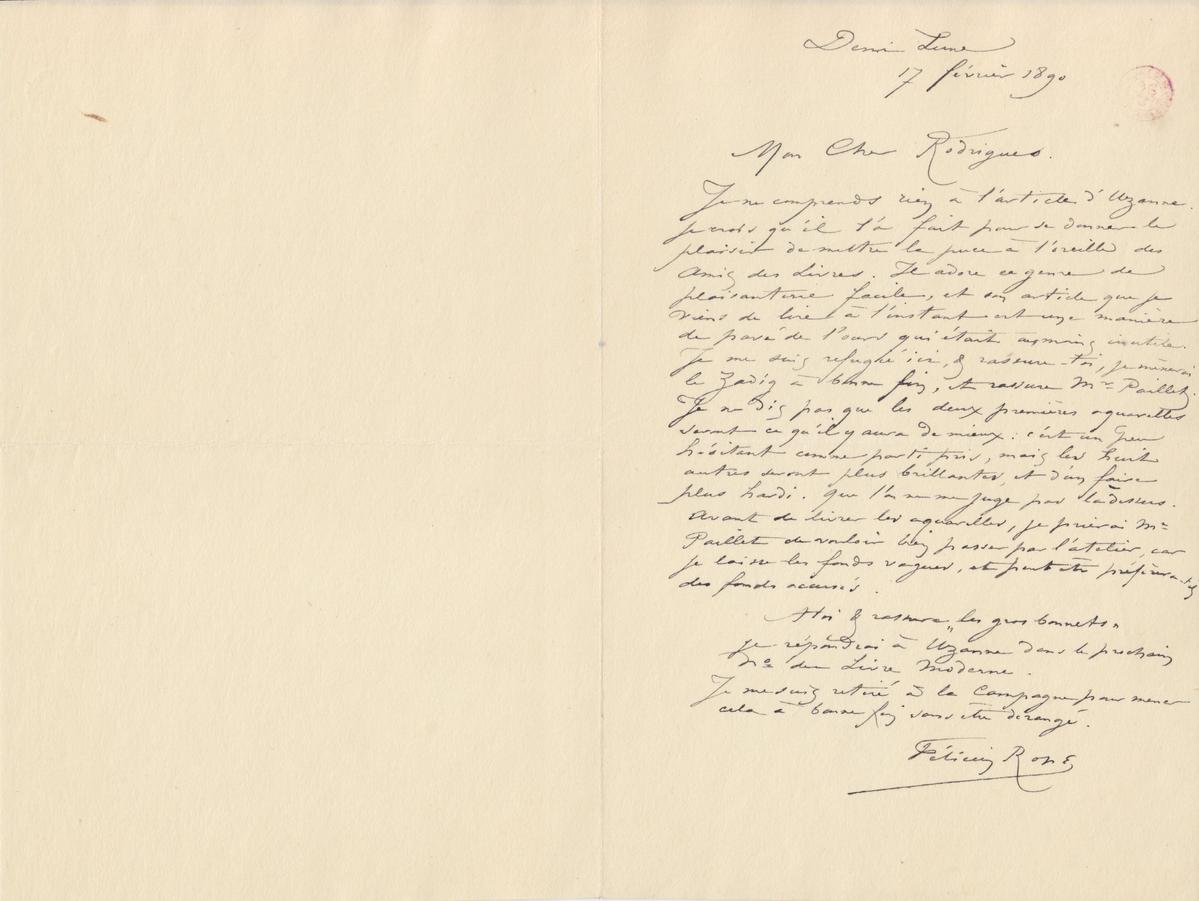 Demi Lune
17 février 1890
Mon Cher Rodrigues.
Je ne comprends rien à l'article d'Uzanne.
je crois qu'il l'a fait pour se donner le
plaisir de mettre la puce à l'oreille des
Amis des Livres. Il adore ce genre de
plaisanterie facile, et son article que je
viens de lire à l'instant est une manière
de pavé de l'ours qui était au moins inutile.
Je me suis refugié ici, & rassure-toi, je mènerai
le Zadig à bonne fin, et rassure Mr Paillet.
Je ne dis pas que les deux premières aquarelles
seront ce qu'il y aura de mieux: c'est un peu
hésitant comme parti pris, mais les huit
autres seront plus brillantes, et d'un faire
plus hardi. Que l'on ne me juge pas là dessus.
Avant de livrer les aquarelles, je prierai Mr
Paillet de vouloir bien passer par l'atelier, car
je laisse les fonds vagues, et peut être préférera-t-il
des fonds accusés.
A toi & rassure „les gros bonnets"
je répondrai à Uzanne dans le prochain
No du Livre Moderne.
Je me suis retiré à la Campagne pour mener
cela à bonne fin sans être dérangé.
Félicien Rops